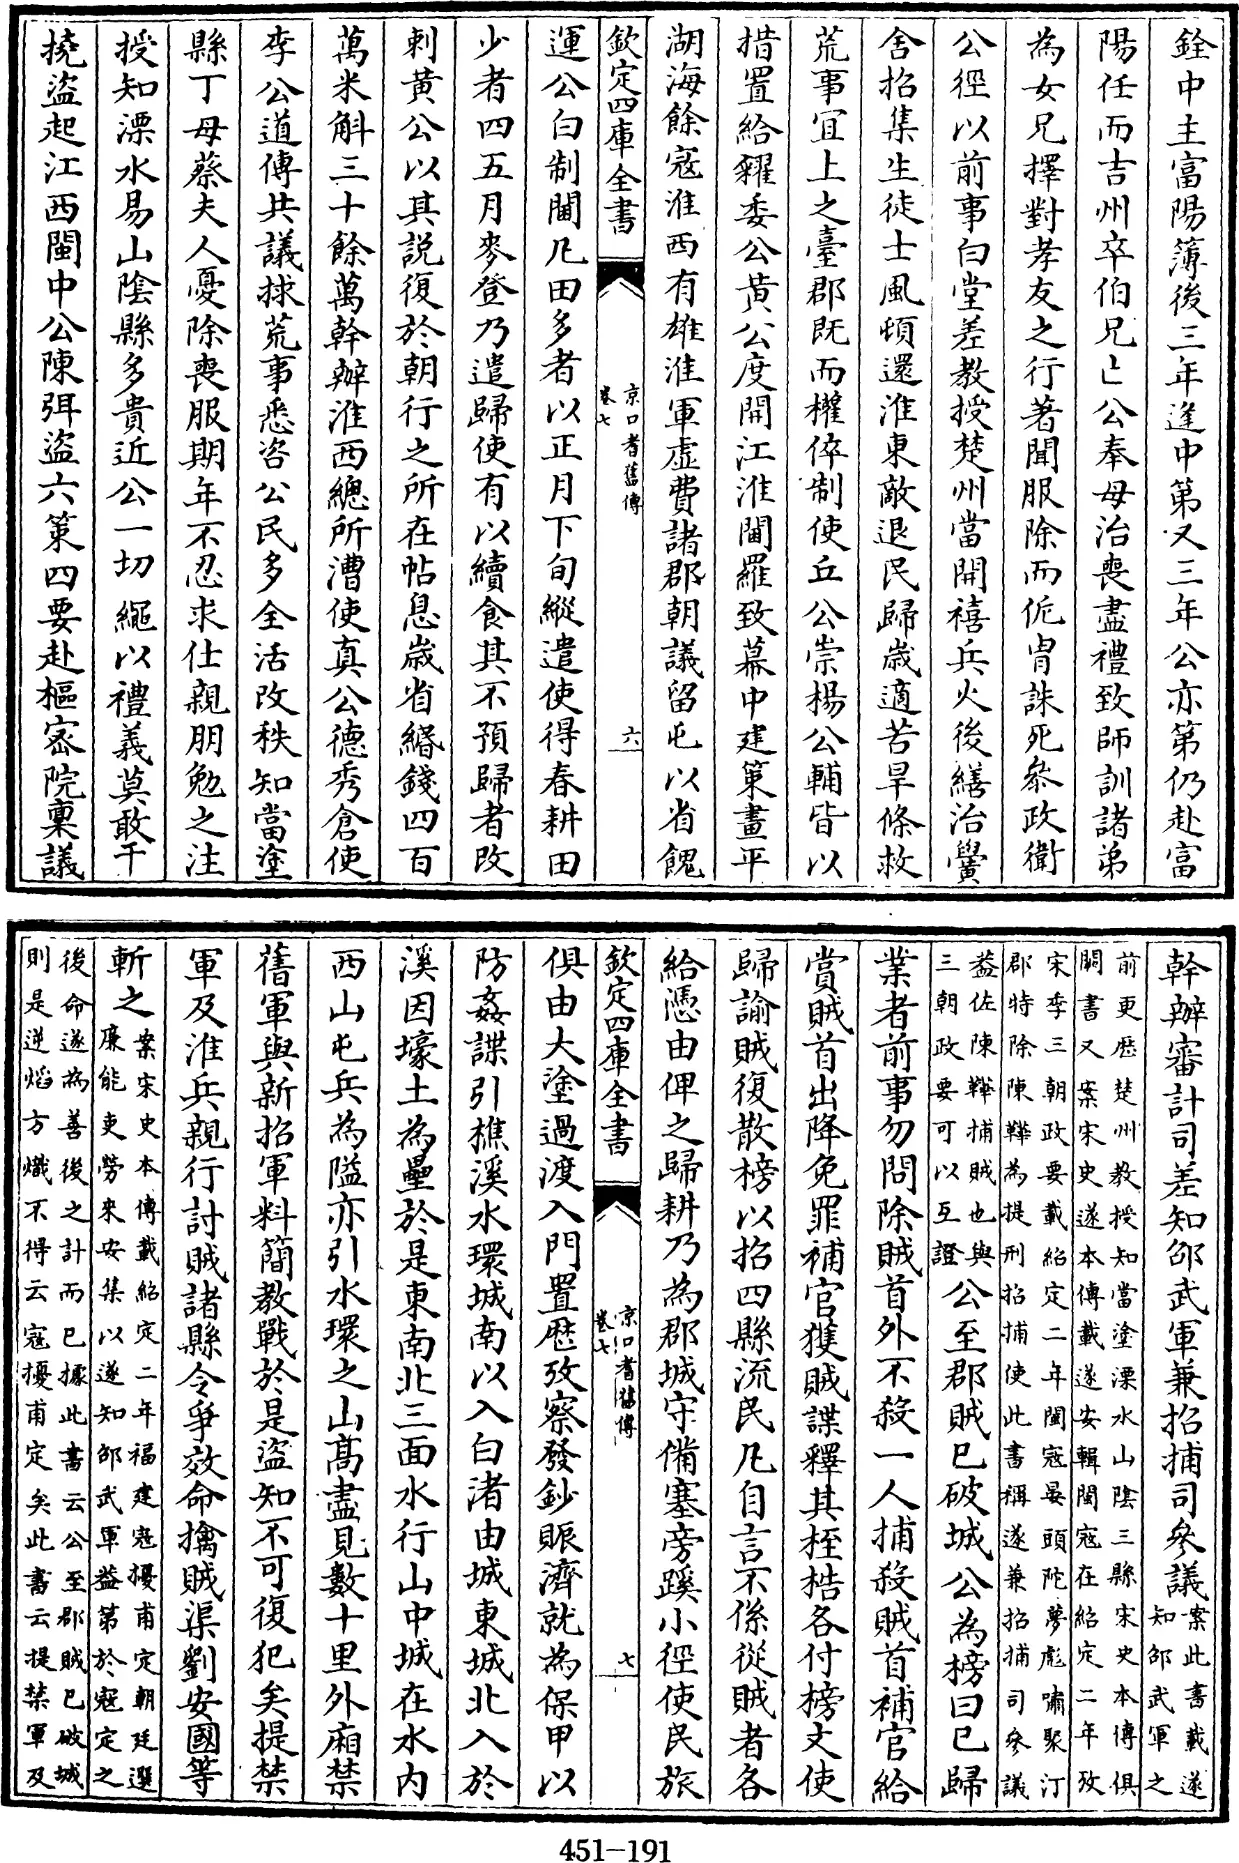 銓中主富陽薄後三年逢中第又三年公亦第仍赴富
陽任而吉州卒伯兄亡公奉母治喪盡禮致師訓諸弟
為女兄擇對孝友之行著聞服除而侂胄誅死叅政衛
公徑以前事白堂差教授楚州當開禧兵火後繕治黌
舍招集生徒士風頓還淮東敵退民歸歳適苦旱條救
荒事宜上之臺郡既而權倅制使丘公崇楊公輔皆以
措置給糴委公黄公度開江淮閫羅致幕中建策畫平
湖海餘寇淮西有雄淮軍虛費諸郡朝議留屯以省餽
欽定四庫全書
京口耆舊傳
卷七
六
運公白制閫凡田多者以正月下旬縱遣使得春耕田
少者四五月麥登乃遣歸使有以續食其不預歸者改
刺黄公以其説復於朝行之所在帖息歳省緡錢四百
萬米斛三十餘萬幹辦淮西總所漕使真公德秀倉使
李公道傳共議捄荒事悉咨公民多全活改秩知當塗
縣丁母蔡夫人憂除喪服期年不忍求仕親朋勉之注
授知溧水易山陰縣多貴近公一切繩以禮義莫敢干
撓盜起江西閩中公陳弭盜六策四要赴樞宻院稟議
幹辦審計司差知邵武軍兼招捕司叅議案此書載遂
知邵武軍之
前更歴楚州教授知當塗溧水山陰三縣宋史本傳俱
闕書又案宋史遂本傳載遂安輯閩寇在紹定二年攷
宋季三朝政要載紹定二年閩寇晏頭陀夢彪嘯聚汀
郡特除陳韡為提刑招捕使此書稱遂兼招捕司叅議
葢佐陳韡捕賊也與
三朝政要可以互證公至郡賊已破城公為榜曰已歸
業者前事勿問除賊首外不殺一人捕殺賊首補官給
賞賊首出降免罪補官獲賊諜釋其桎梏各付榜文使
歸諭賊復散榜以招四縣流民凡自言不係從賊者各
給憑由俾之歸耕乃為郡城守備塞旁蹊小徑使民旅
欽定四庫全書
京口耆舊傳
卷七
七
俱由大塗過渡入門置歴攷察發鈔賑濟就為保甲以
防姦諜引樵溪水環城南以入白渚由城東城北入於
溪因壕土為壘於是東南北三面水行山中城在水内
西山屯兵為隘亦引水環之山髙盡見數十里外廂禁
舊軍與新招軍料簡教戰於是盜知不可復犯矣提禁
軍及淮兵親行討賊諸縣令爭效命擒賊渠劉安國等
斬之案宋史本傳載紹定二年福建寇擾甫定朝廷選
亷能吏勞來安集以遂知邵武軍葢第於寇定之
後命遂為善後之計而已據此書云公至郡賊已破城
則是逆熖方熾不得云寇擾甫定矣此書云提禁軍及
451-191